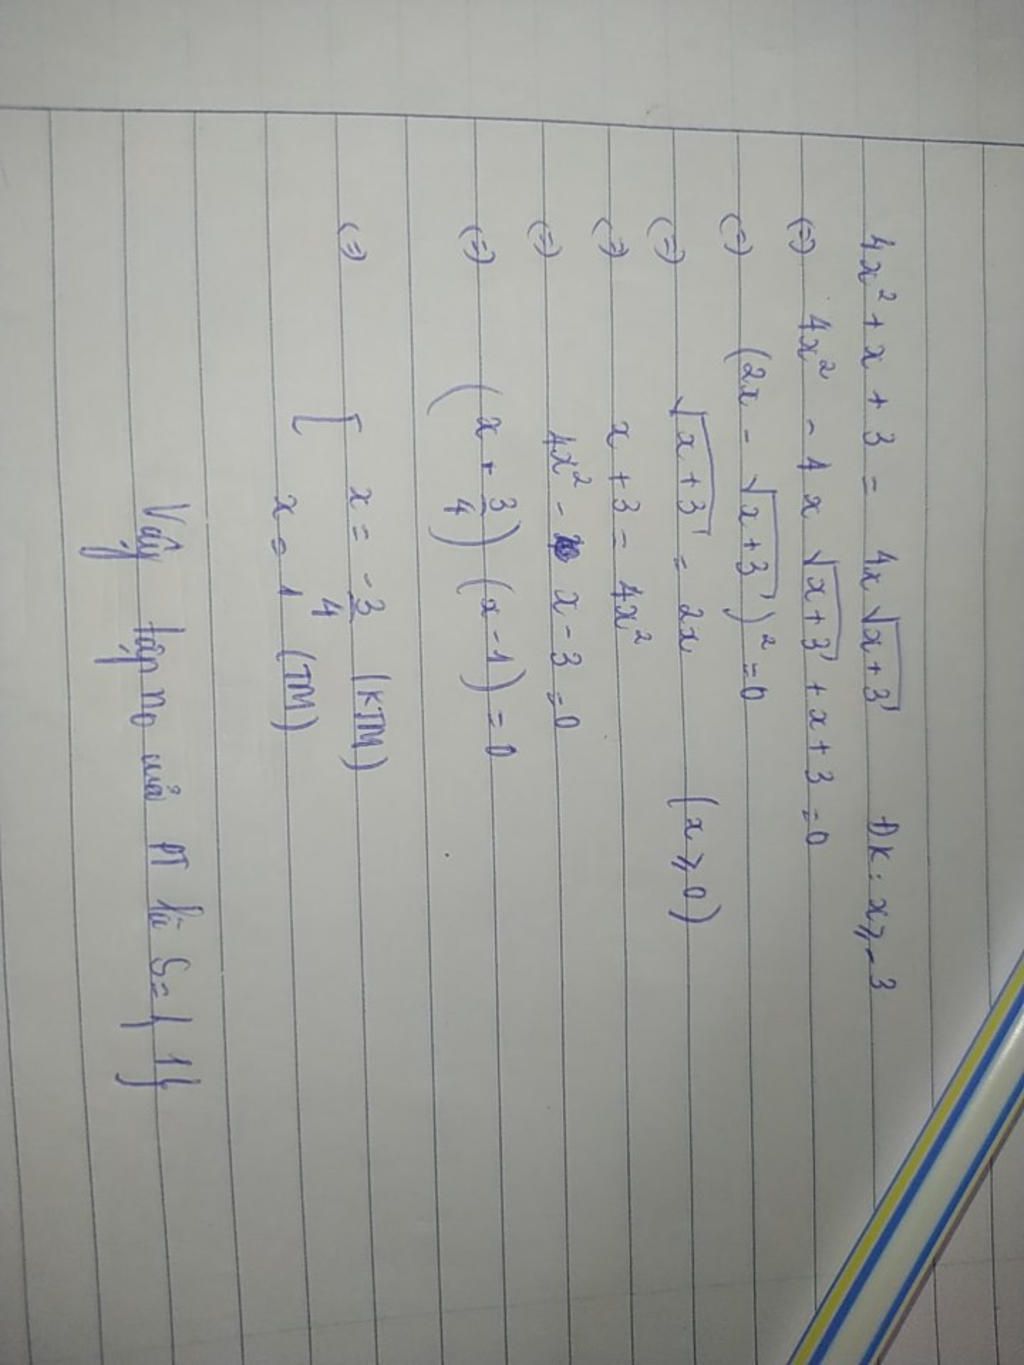 4x² + x + 3 = 4x√(x+3) ĐK: x ≥ -3
(=) 4x² - 4x√(x+3) + x + 3 = 0
(=) (2x - √(x+3))² = 0
(=) √(x+3) = 2x (x ≥ 0)
(=) x + 3 = 4x²
(=) 4x² - x - 3 = 0
(=) (x + 3/4) (x - 1) = 0
(=) [ x = -3/4 (KTM)
x = 1 (TM)
Vậy tập n₀ của PT là S = {1}